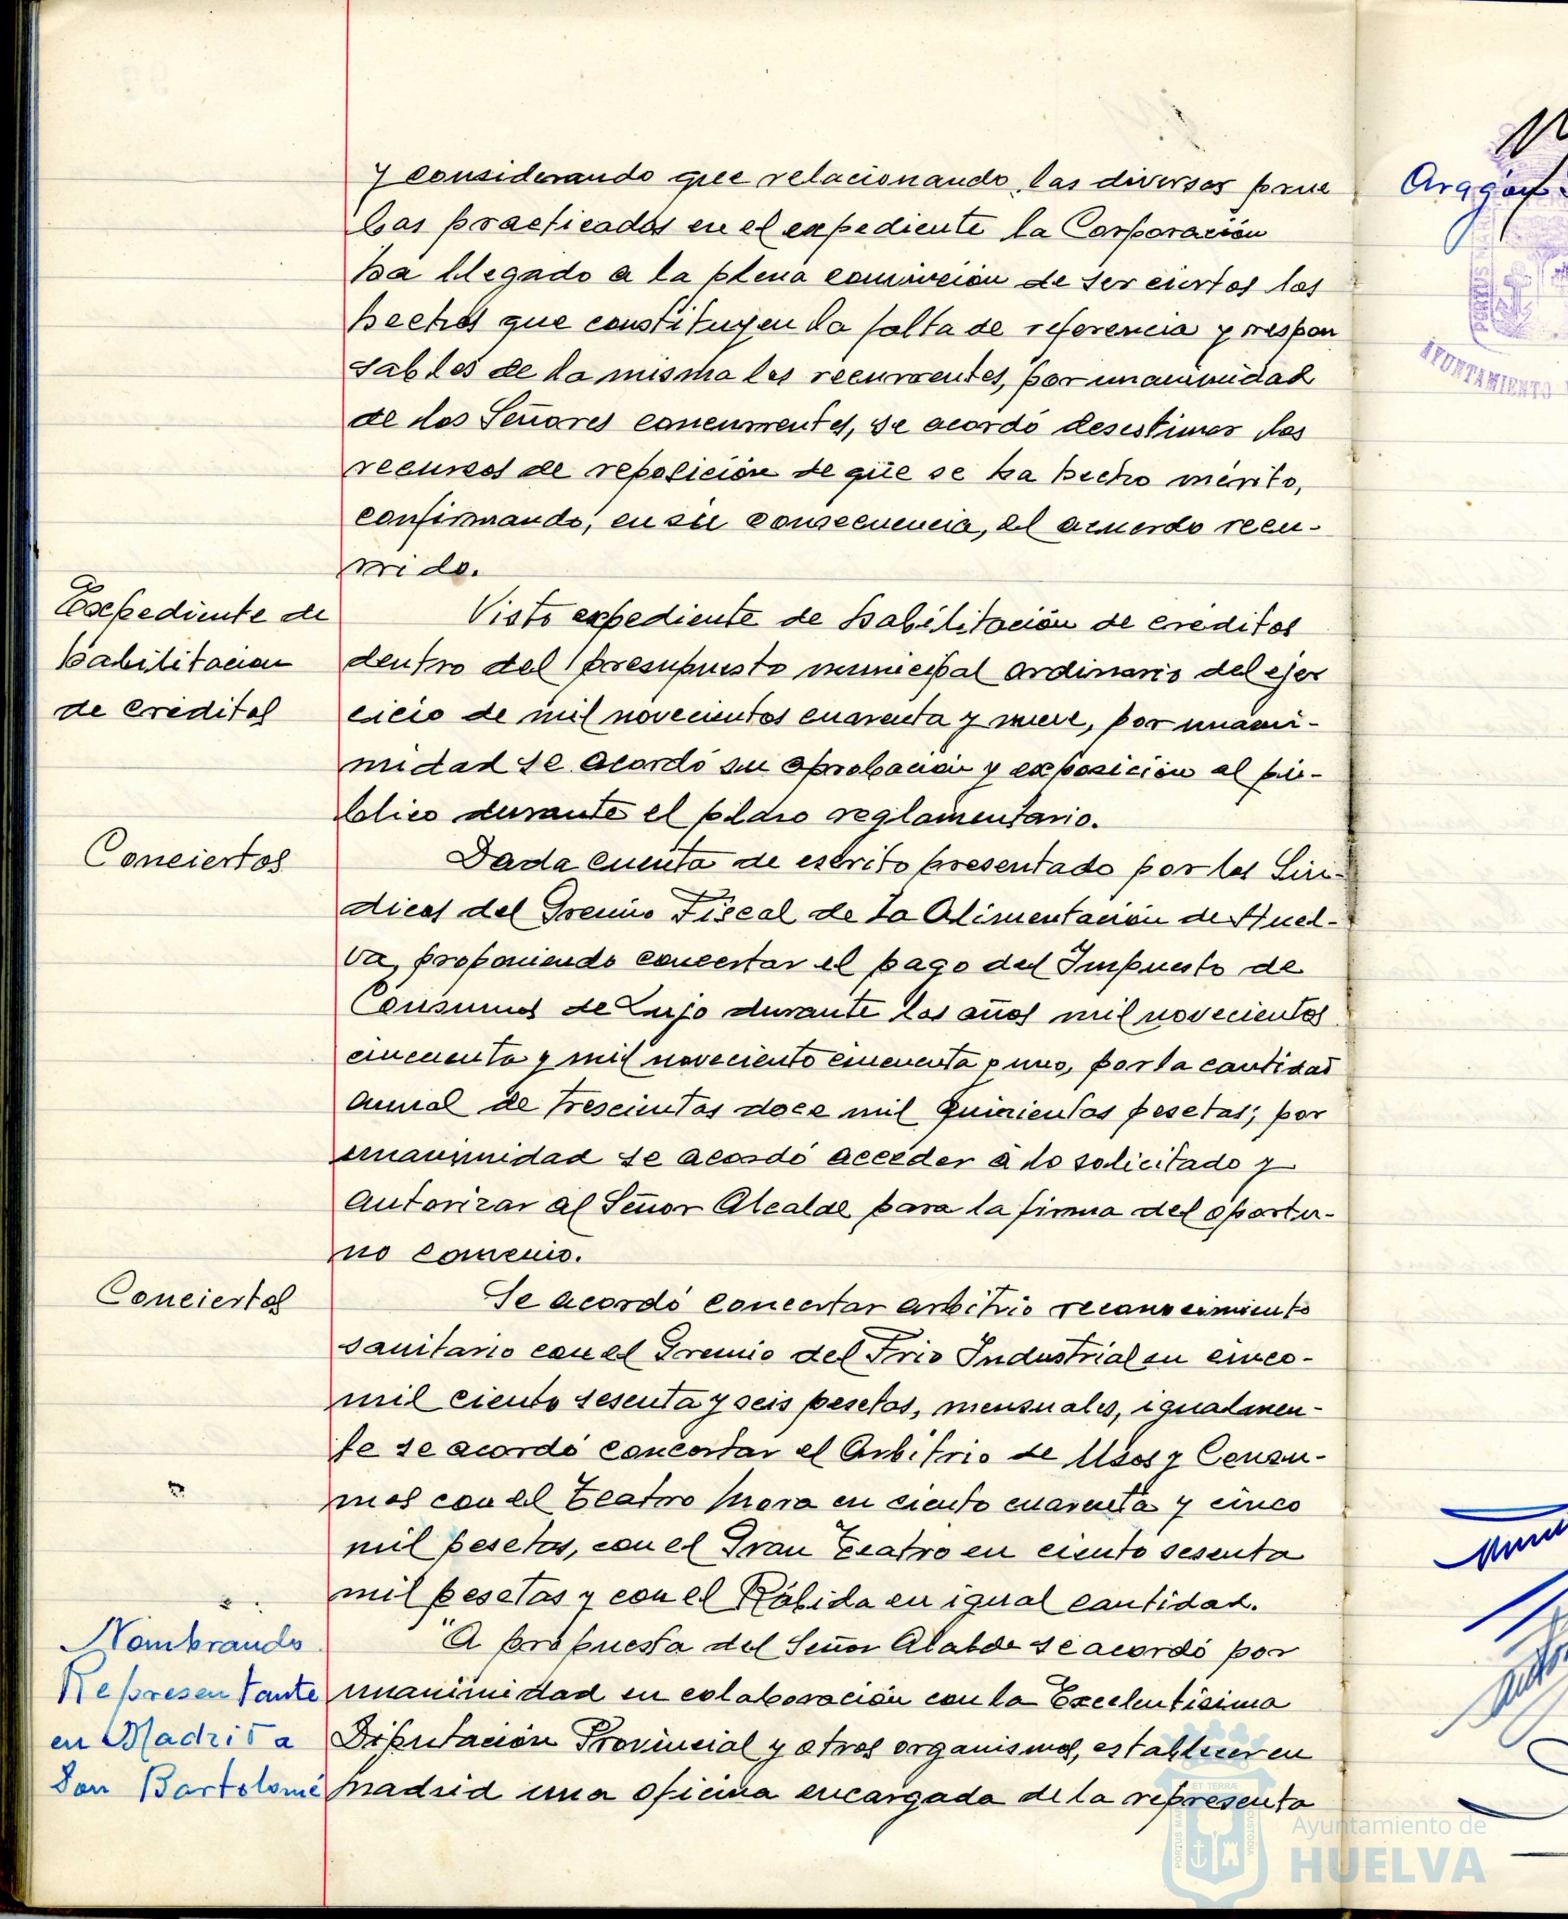 y considerando que relacionando las diversas prue
bas practicadas en el expediente la Corporación
ha llegado a la plena convicción de ser ciertos los
hechos que constituyen la falta de referencia y respon
sables de la misma los recurrentes, por unanimidad
de los Señores concurrentes, se acordó desestimar los
recursos de reposición de que se ha hecho mérito,
confirmando, en su consecuencia, el acuerdo recu-
rrido.
Expediente de
habilitacion
de creditos
Visto expediente de habilitación de creditos
dentro del presupuesto municipal ordinario del ejer
cicio de mil novecientos cuarenta y nueve, por unani-
midad se acordó su aprobación y exposición al pú-
blico durante el plazo reglamentario.
Conciertos
Dada cuenta de escrito presentado por los Sín-
dicos del Gremio Fiscal de la Alimentación de Huel-
va, proponiendo concertar el pago del Impuesto de
Consumos de Lujo durante los años mil novecientos
cincuenta y mil noveciento cincuenta y uno, por la cantidad
anual de trescientas doce mil quinientas pesetas; por
unanimidad se acordó acceder a lo solicitado y
autorizar al Señor Alcalde para la firma del oportu-
no convenio.
Conciertos
Se acordó concertar arbitrio reconocimiento
sanitario con el Gremio del Frio Industrial en cinco-
mil ciento sesenta y seis pesetas, mensuales, igualmen-
te se acordó concertar el Arbitrio de Usos y Consu-
mos con el Teatro Mora en ciento cuarenta y cinco
mil pesetas, con el Gran Teatro en ciento sesenta
mil pesetas y con el Rábida en igual cantidad.
Nombrando
Representante
en Madrid a
Don Bartolomé
"A propuesta del Señor Alalde se acordó por
unanimidad en colaboración con la Excelentísima
Diputación Provincial y otros organismos, establecer en
Madrid una oficina encargada de la representa
Aragón
AYUNTAMIENTO
Ayuntamiento de
HUELVA